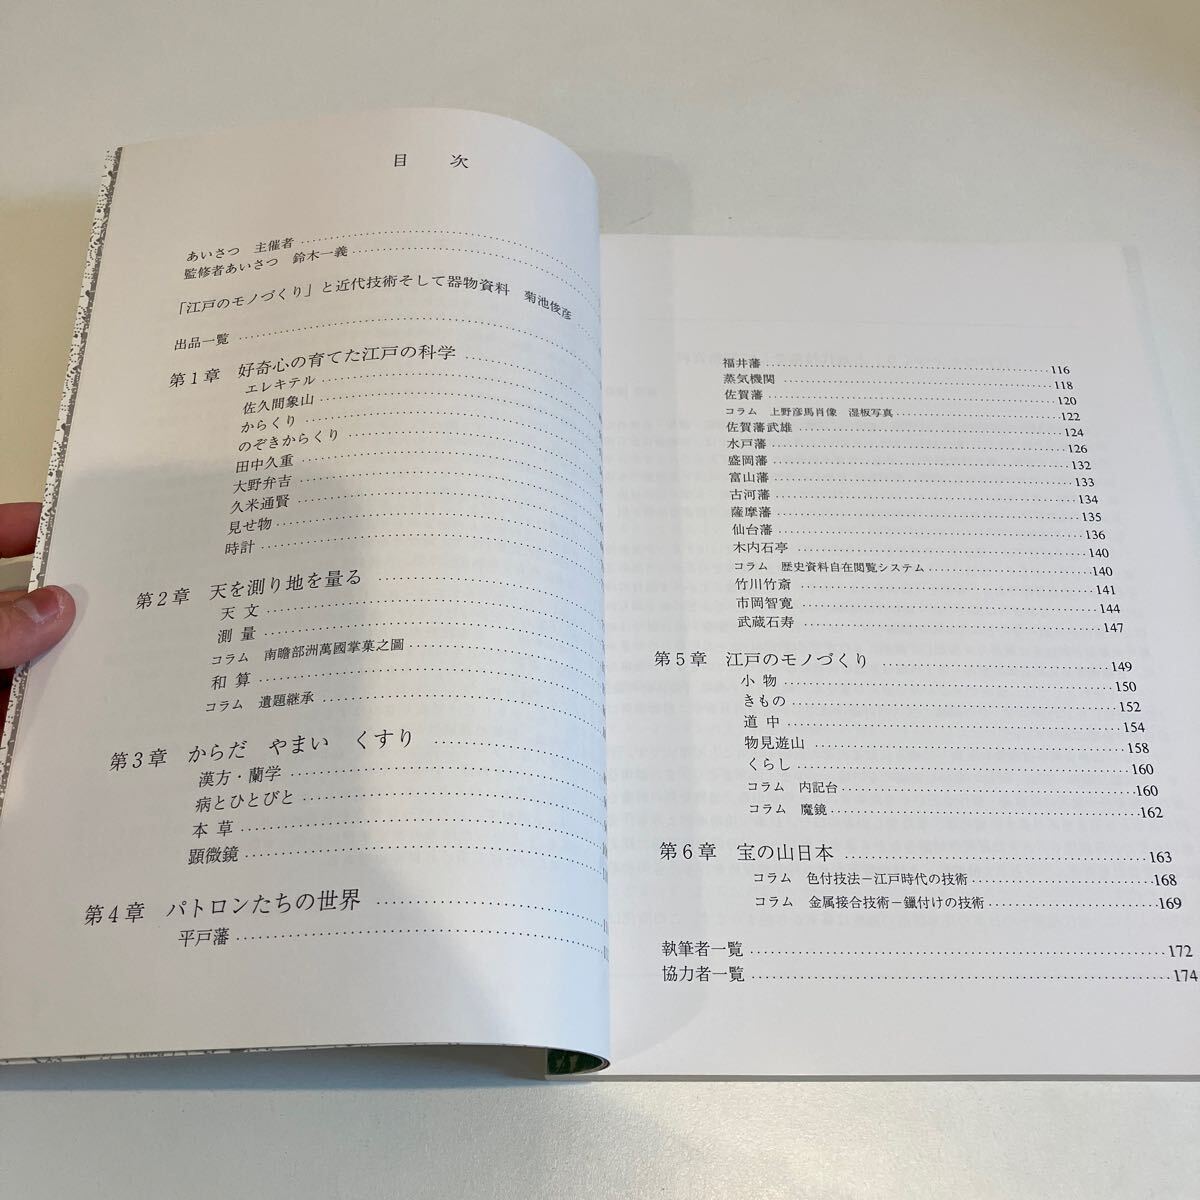 目　次
あいさつ　主催者
監修者あいさつ　鈴木一義
「江戸のモノづくり」と近代技術そして器物資料　菊池俊彦
出品一覧
第1章　好奇心の育てた江戸の科学
エレキテル
佐久間象山
からくり
のぞきからくり
田中久重
大野弁吉
久米通賢
見せ物
時計
第2章　天を測り地を量る
天 文
測 量
コラム　南瞻部洲萬國掌菓之圖
和 算
コラム　遺題継承
第3章　からだ　やまい　くすり
漢方・蘭学
病とひとびと
本 草
顕微鏡
第4章　パトロンたちの世界
平戸藩
福井藩 116
蒸気機関 118
佐賀藩 120
コラム　上野彦馬肖像　湿板写真 122
佐賀藩武雄 124
水戸藩 126
盛岡藩 132
富山藩 133
古河藩 134
薩摩藩 135
仙台藩 136
木内石亭 140
コラム　歴史資料自在閲覧システム 140
竹川竹斎 141
市岡智寛 144
武蔵石寿 147
第5章　江戸のモノづくり 149
小 物 150
きもの 152
道 中 154
物見遊山 158
くらし 160
コラム　内記台 160
コラム　魔鏡 162
第6章　宝の山日本 163
コラム　色付技法－江戸時代の技術 168
コラム　金属接合技術－鑞付けの技術 169
執筆者一覧 172
協力者一覧 174